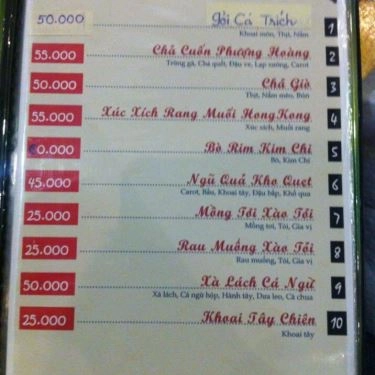 50.000 Gỏi Cá Trích 1
Khoai môn, Thịt, Nấm
55.000 Chả Cuốn Phượng Hoàng 2
Trứng gà, Chả quết, Đậu ve, Lạp xưởng, Carot
50.000 Chả Giò 3
Thịt, Nấm mèo, Bún
55.000 Xúc Xích Rang Muối HongKong 4
Xúc xích, Muối rang
0.000 Bò Rim Kim Chi 5
Bò, Kim Chi
45.000 Ngũ Quả Kho Quẹt 6
Carot, Bầu, Khoai tây, Đậu bắp, Khổ qua
25.000 Mồng Tơi Xào Tỏi 7
Mồng tơi, Tỏi, Gia vị
25.000 Rau Muống Xào Tỏi 8
Rau muống, Tỏi, Gia vị
50.000 Xà Lách Cá Ngừ 9
Xà lách, Cá ngừ hộp, Hành tây, Dưa leo, Cà chua
25.000 Khoai Tây Chiên 10
Khoai tây